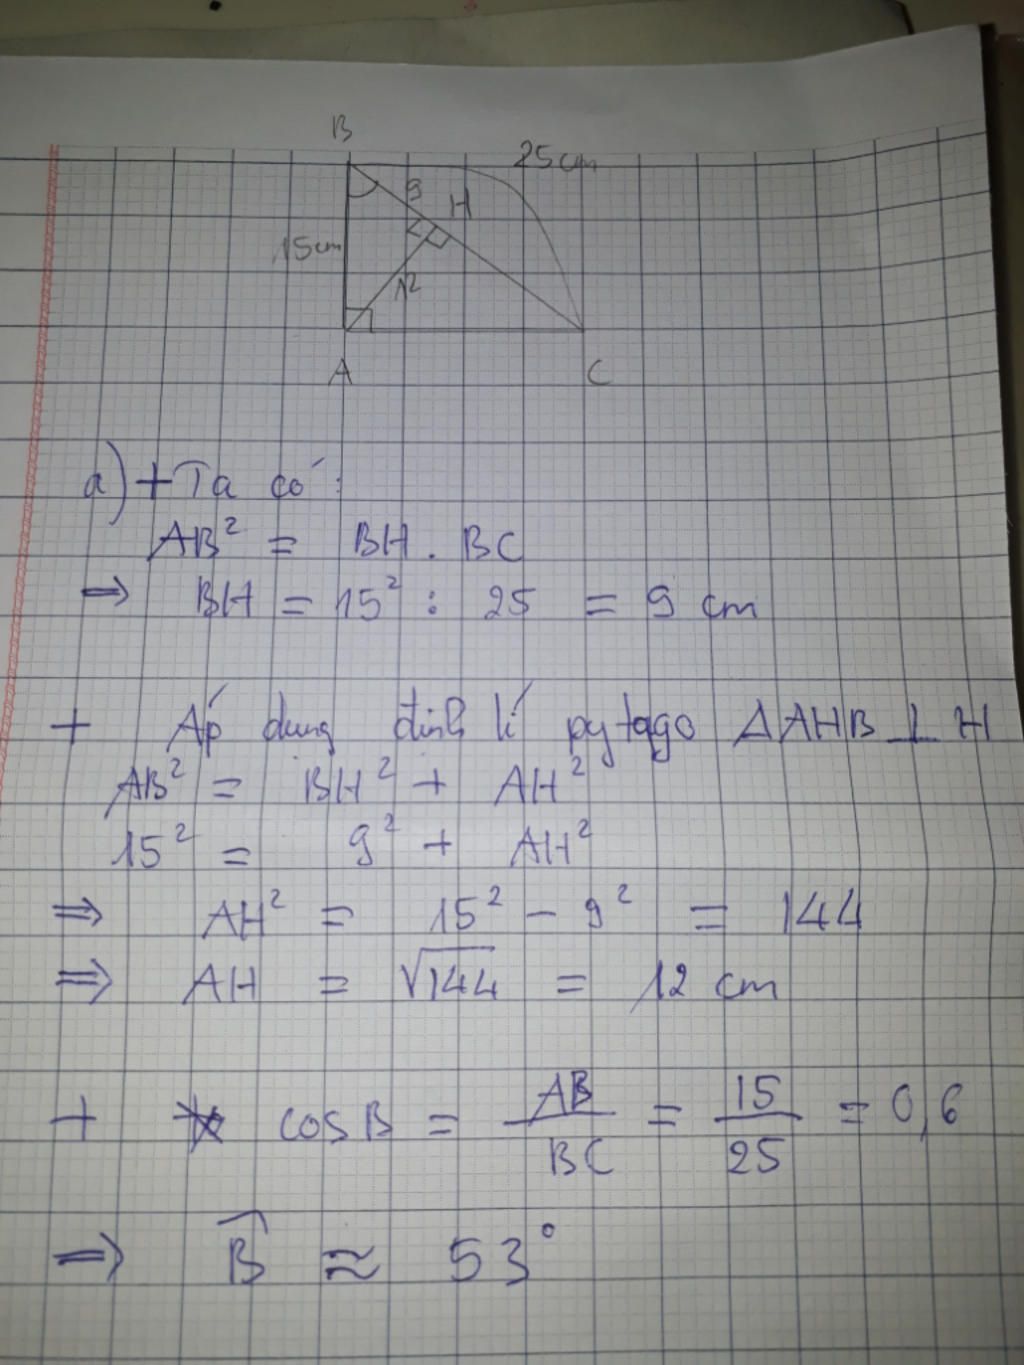 B
25cm
9
H
15cm
12
A
C
a) + Ta có:
AB² = BH . BC
⇒ BH = 15² : 25 = 9 cm
+ Áp dụng định lí pytago ΔAHB ⊥ H
AB² = BH² + AH²
15² = 9² + AH²
⇒ AH² = 15² - 9² = 144
⇒ AH = √144 = 12 cm
+ cosB = AB/BC = 15/25 = 0,6
⇒ B̂ ≈ 53°